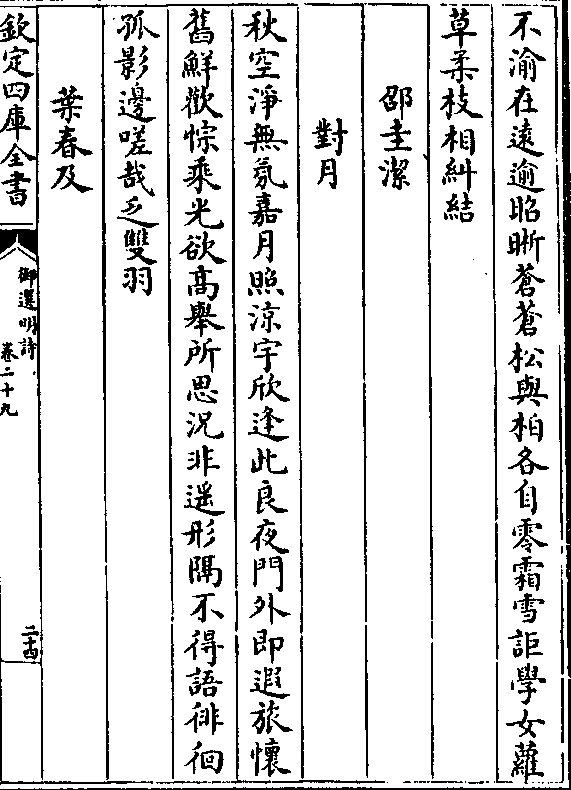 不渝在遠逾昭晰蒼蒼松與柏各自零霜雪詎學女蘿
草柔枝相糾結
邵圭潔
對月
秋空淨無氛嘉月照涼宇欣逢此良夜門外即遐旅懷
舊鮮歡悰乘光欲高舉所思況非遥形隔不得語徘徊
孤影邊嗟哉乏雙羽
葉春及
欽定四庫全書
御選明詩
卷二十九
二十四